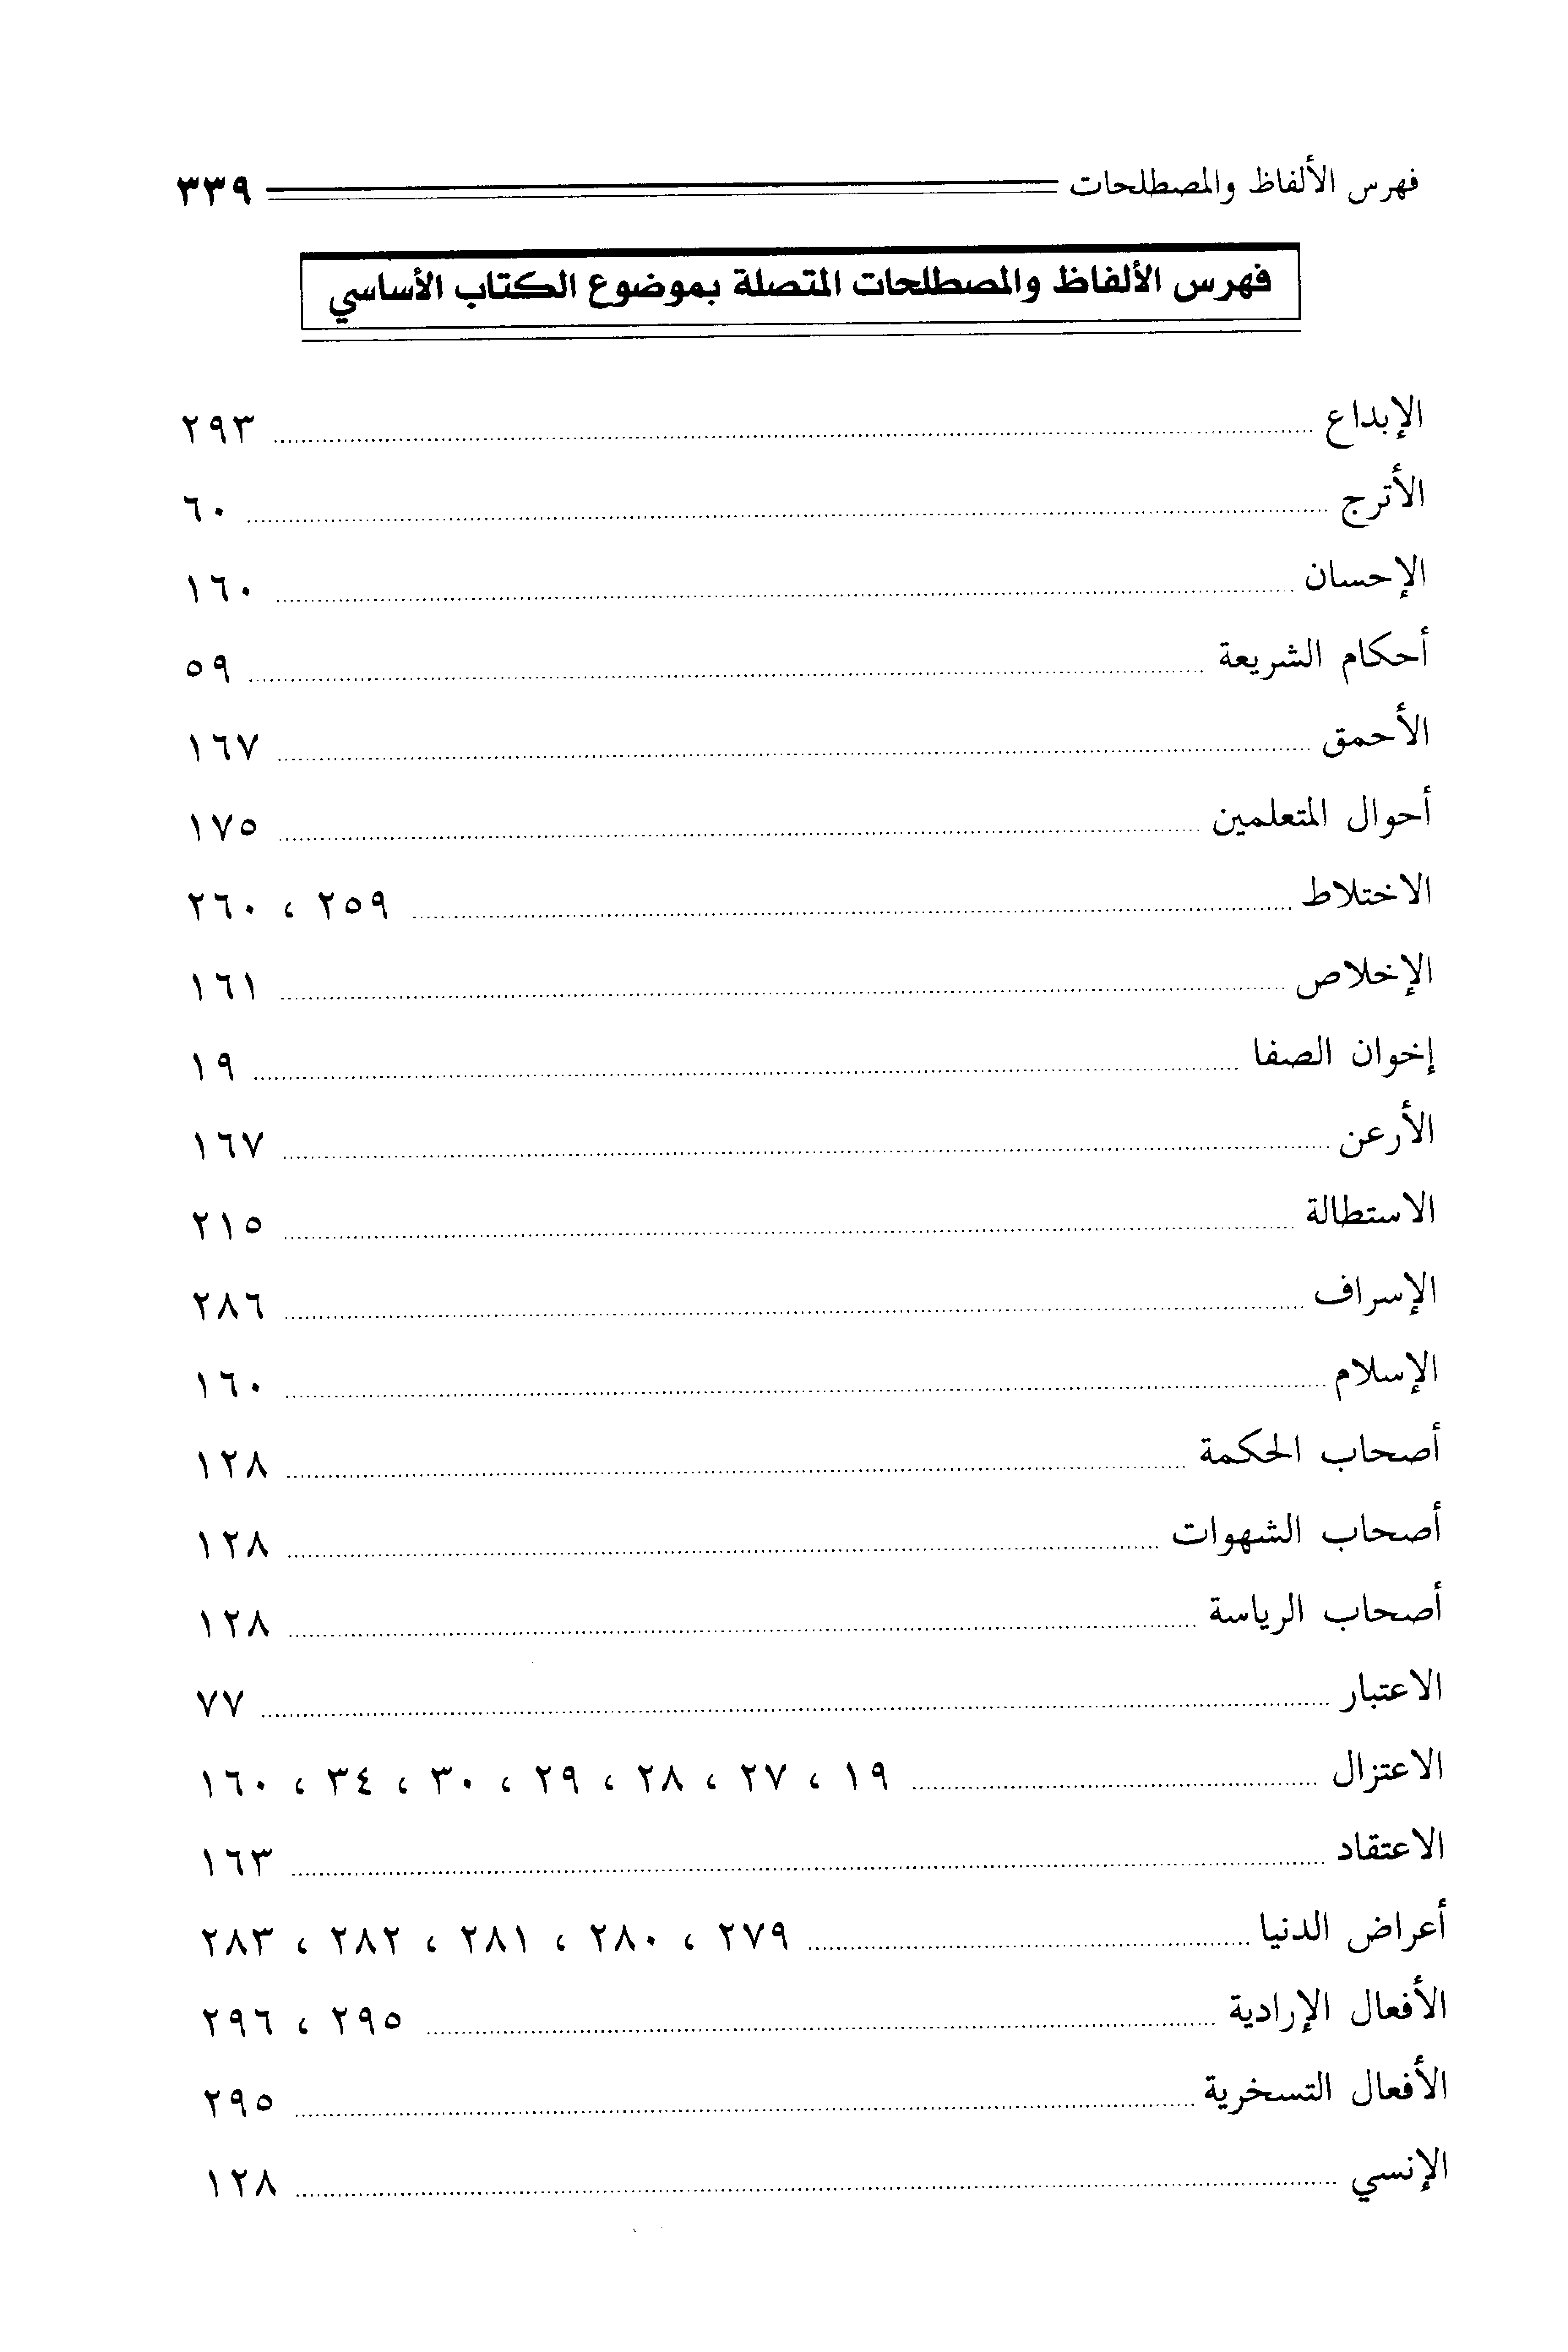 فهرس الألفاظ والمصطلحات ٣٣٩
فهرس الألفاظ والمصطلحات المتصلة بموضوع الكتاب الأساسي
الإبداع ٢٩٣
الأترج ٦٠
الإحسان ١٦٠
أحكام الشريعة ٥٩
الأحمق ١٦٧
أحوال المتعلمين ١٧٥
الاختلاط ٢٥٩ ، ٢٦٠
الإخلاص ١٦١
إخوان الصفا ١٩
الأرعن ١٦٧
الاستطالة ٢١٥
الإسراف ٢٨٦
الإسلام ١٦٠
أصحاب الحكمة ١٢٨
أصحاب الشهوات ١٢٨
أصحاب الرياسة ١٢٨
الاعتبار ٧٧
الاعتزال ١٩ ، ٢٧ ، ٢٨ ، ٢٩ ، ٣٠ ، ٣٤ ، ١٦٠
الاعتقاد ١٦٣
أعراض الدنيا ٢٧٩ ، ٢٨٠ ، ٢٨١ ، ٢٨٢ ، ٢٨٣
الأفعال الإرادية ٢٩٥ ، ٢٩٦
الأفعال التسخرية ٢٩٥
الإنسي ١٢٨